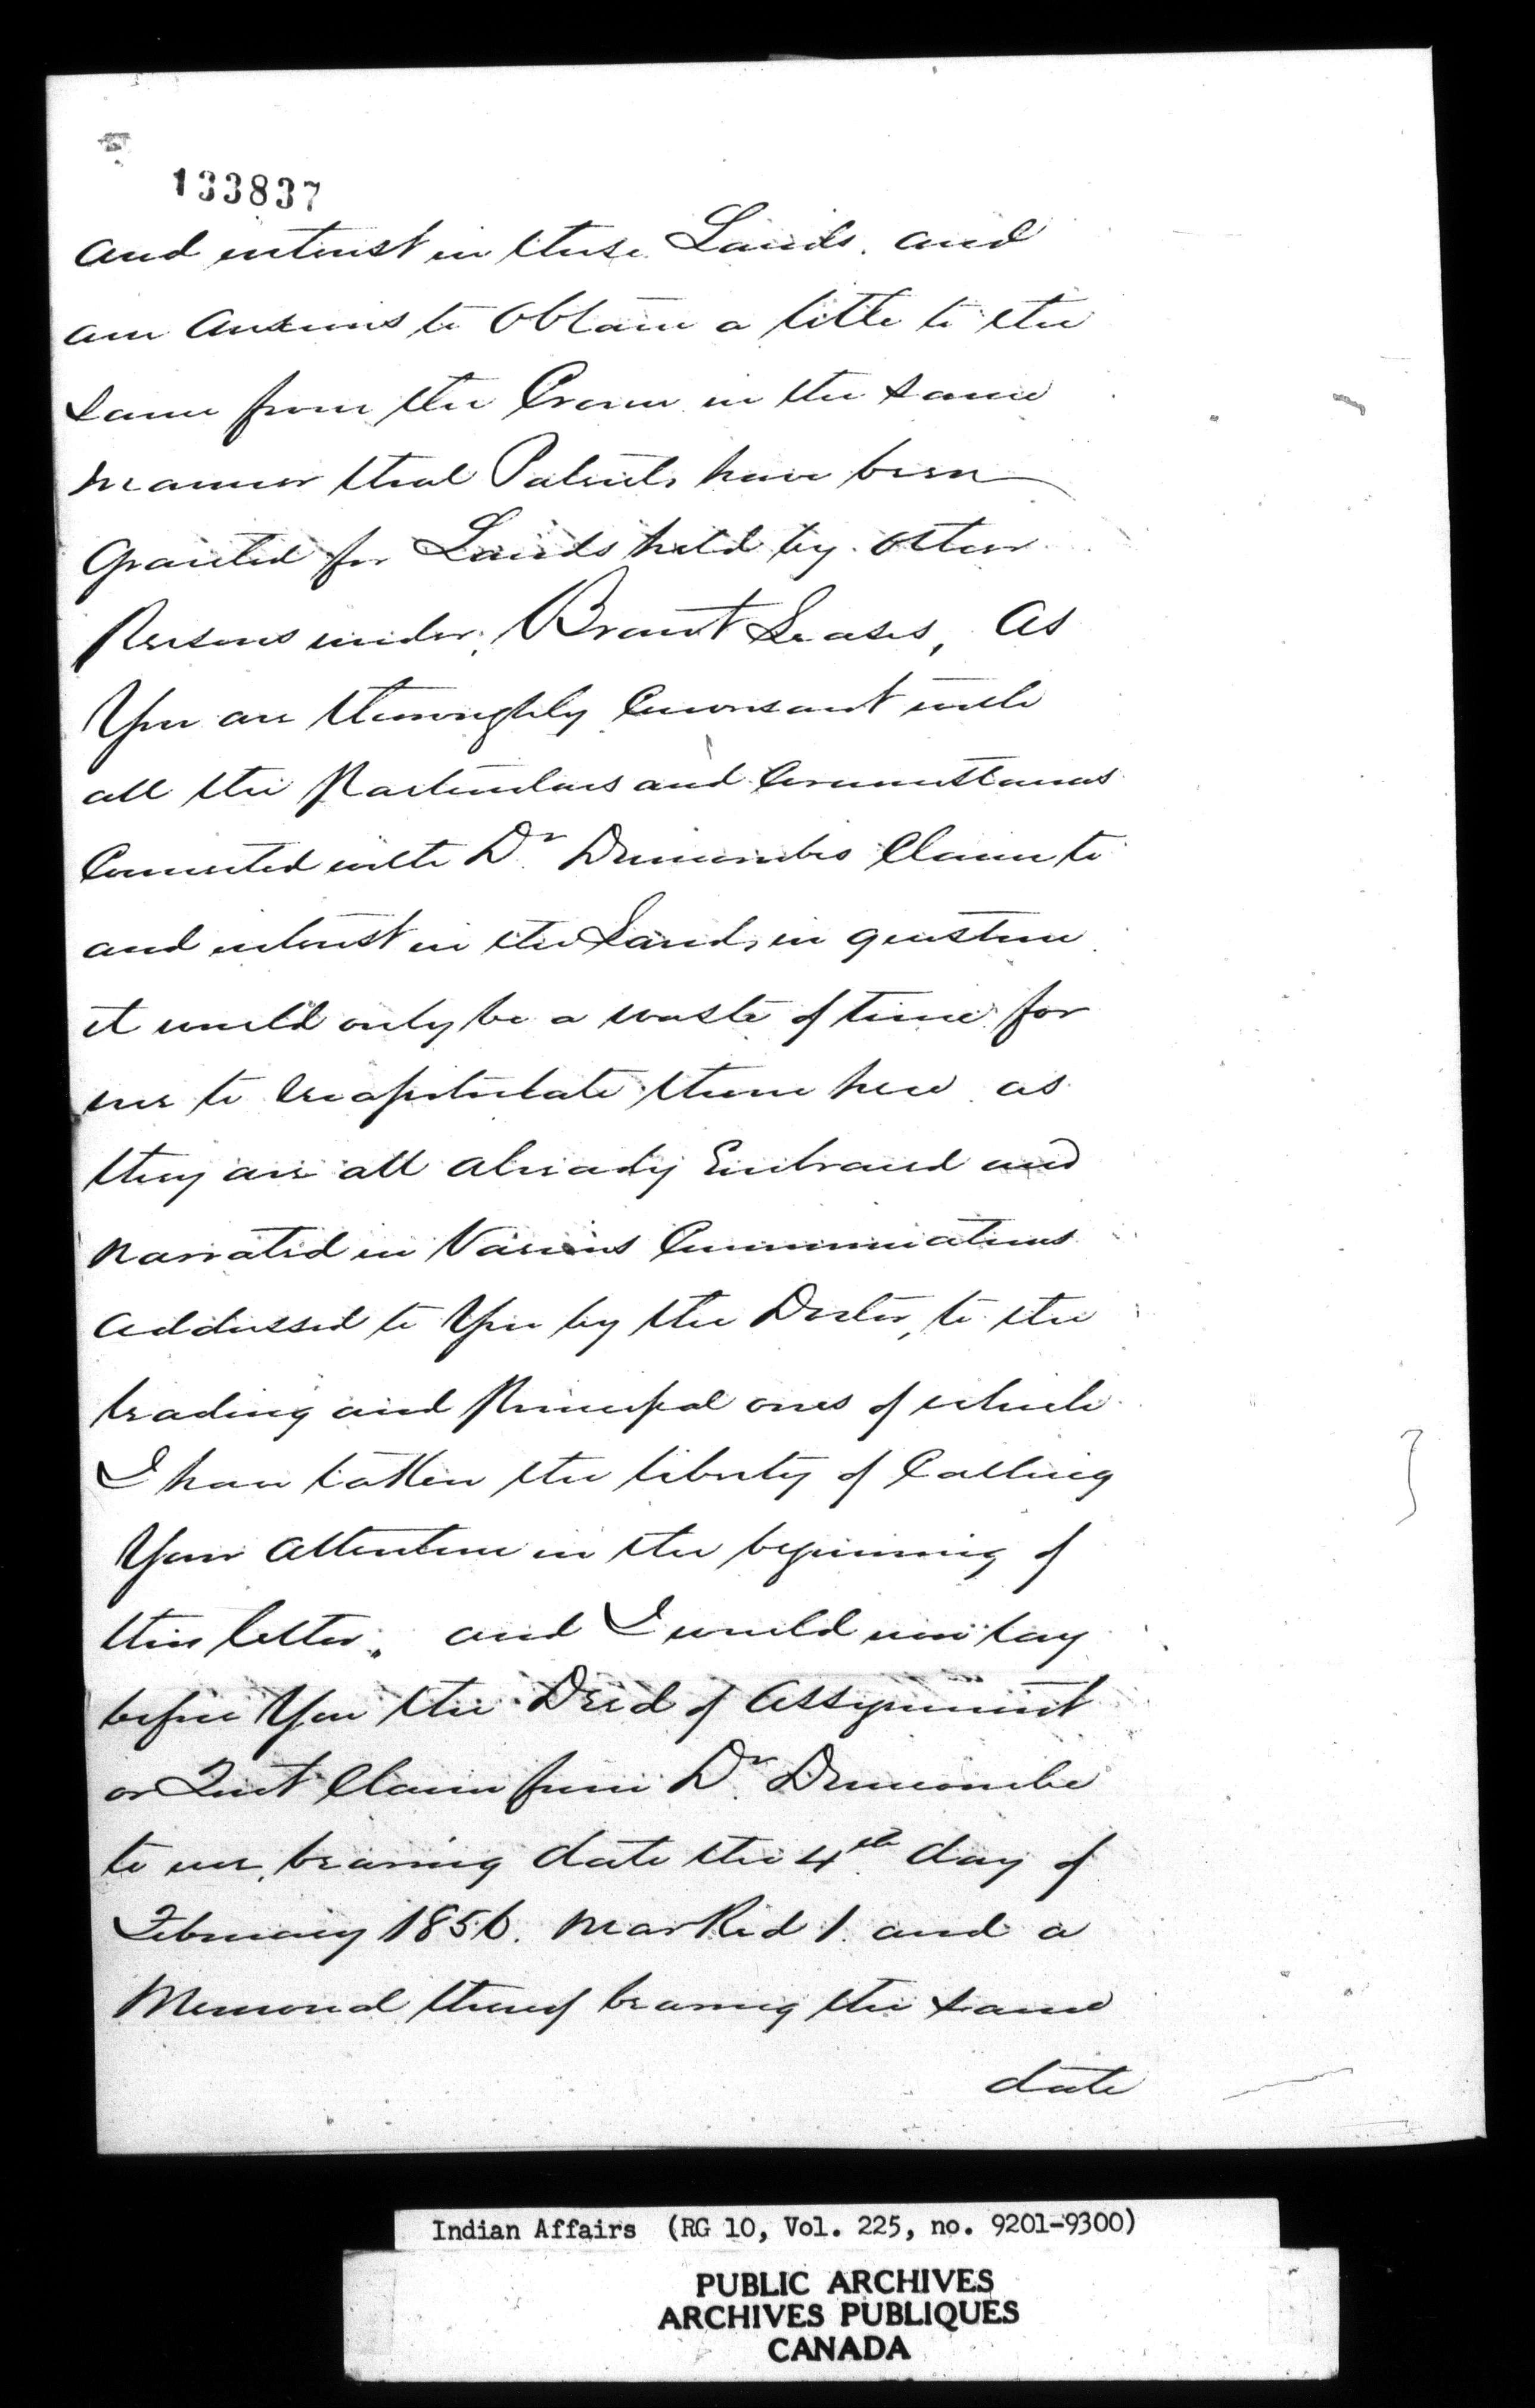 133837
and interest in these Lands. and
am anxious to obtain a title to the
same from the Crown in the same
manner that Patents have been
granted for Lands held by other
Persons under, Brant Leases, As
You are thoroughly Conversant with
all the Particulars and Circumstances
Connected with Dr. Duncombes Claim to
and interest in the Lands in question
it would only be a waste of time for
me to recapitulate them here as
they are all already Embraced and
narrated in Various Communications
addressed to You by the Doctor, to the
leading and Principal ones of which
I have taken the liberty of Calling
Your attention in the beginning of
this letter, and I would now lay
before You the Deed of Assignment
or Quit Claim from Dr. Duncombe
to me, bearing date the 4th day of
February 1856. marked 1. and a
Memorial thereof bearing the same
date
Indian Affairs (RG 10, Vol. 225, no. 9201-9300)
PUBLIC ARCHIVES
ARCHIVES PUBLIQUES
CANADA